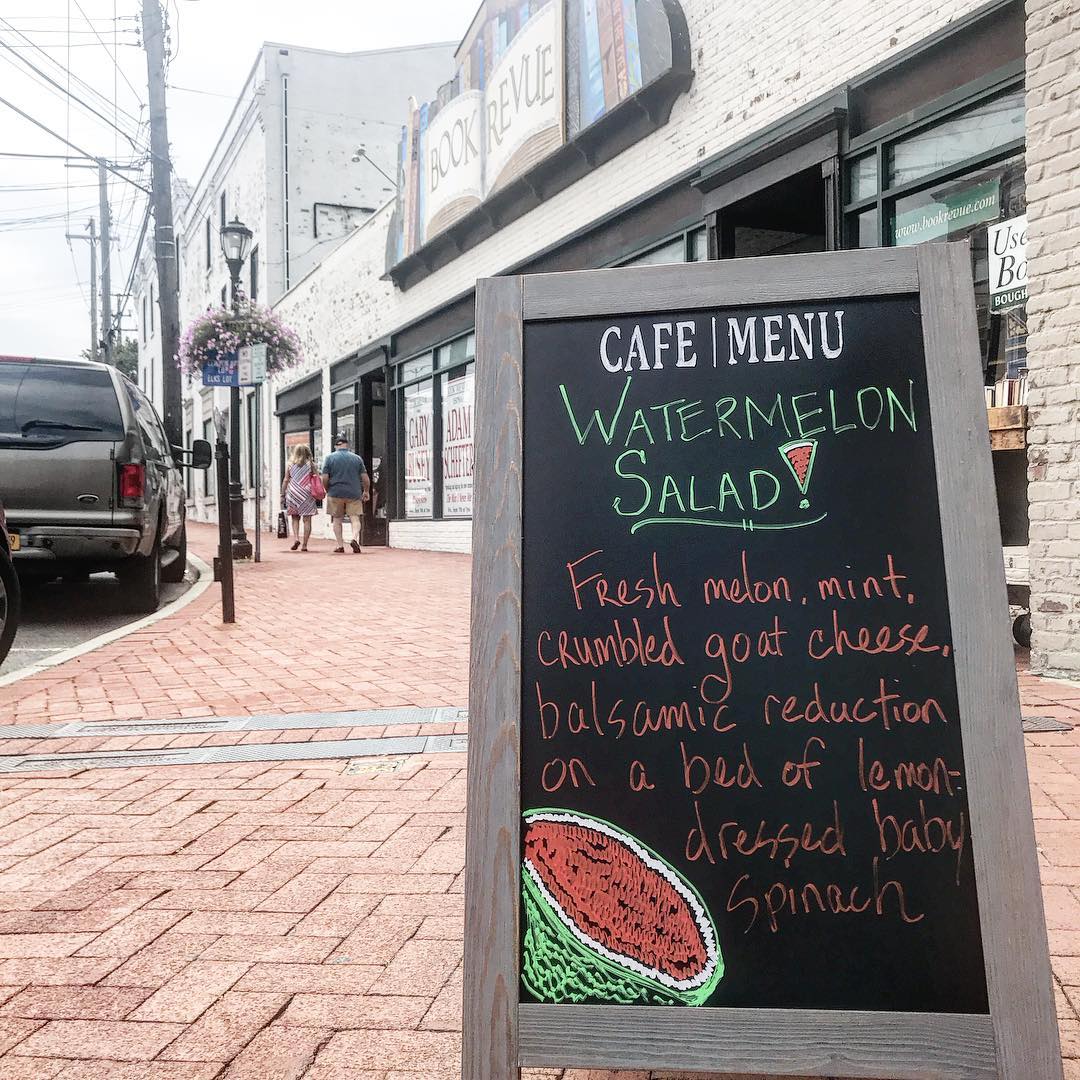 BOOK REVUE
www.bookrevue.com
Use
Bo
BOUGH
GARY
BUSEY
ADAM
CAFE | MENU
WATERMELON
SALAD!
Fresh melon, mint,
crumbled goat cheese,
balsamic reduction
on a bed of lemon-
dressed baby
spinach